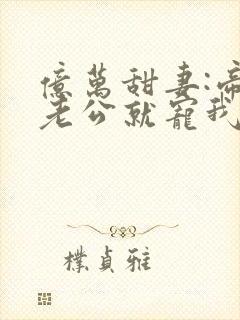 億萬甜妻:帝
老公就寵我
樸貞雅